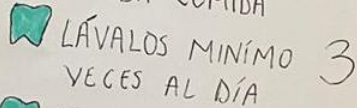 LÁVALOS MINÍMO 3
VECES AL DÍA